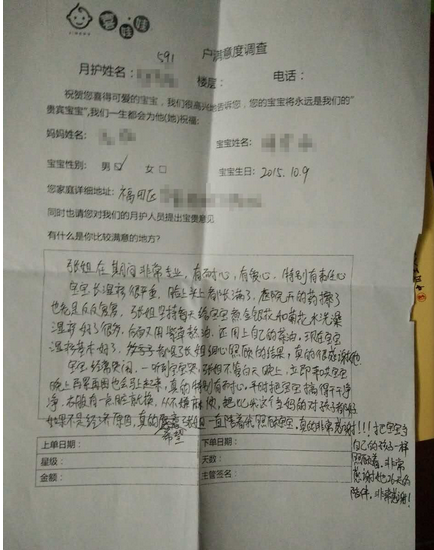 爱·娃娃
591
户满意度调查
月护姓名: 楼层: 电话:
祝贺您喜得可爱的宝宝,我们很高兴地告诉您,您的宝宝将永远是我们的“
贵宾宝宝”,我们一生都会为他(她)祝福!
妈妈姓名: 宝宝姓名:
宝宝性别: 男 女□ 宝宝生日: 2015.10.9
您家庭详细地址: 福田区
同时也请您对我们的月护人员提出宝贵意见
有什么是你比较满意的地方?
张姐在期间非常专业,有耐心,有爱心,特别有责任心
宝宝长湿疹很严重,脸上头上都长满了,医院开的药擦了
也是反反复复,张姐坚持每天给宝宝煮金银花和菊花水洗澡
湿疹好了很多,后面又用紫草软油,还用上自己的茶油,现在宝宝
湿疹基本好了,都是张姐细心照顾的结果,真的很感谢她
宝宝经常哭闹,一听到宝宝哭,张姐不管白天晚上,立即再
晚上再累再困也会马上起来,真的特别有耐心,平时把宝宝搞得干干净
净,衣服有一点脏就换,从不怕麻烦,把比我这个当妈的对孩子都好
如果不是经济原因,真的希望张姐一直陪着我,照顾宝宝,真的非常感谢!!!把宝宝当
自己的孩子一样
照顾着,非常
感谢她26天的
陪伴,非常感谢!
上单日期: 下单日期:
星级: 天数:
金额: 主管签名: